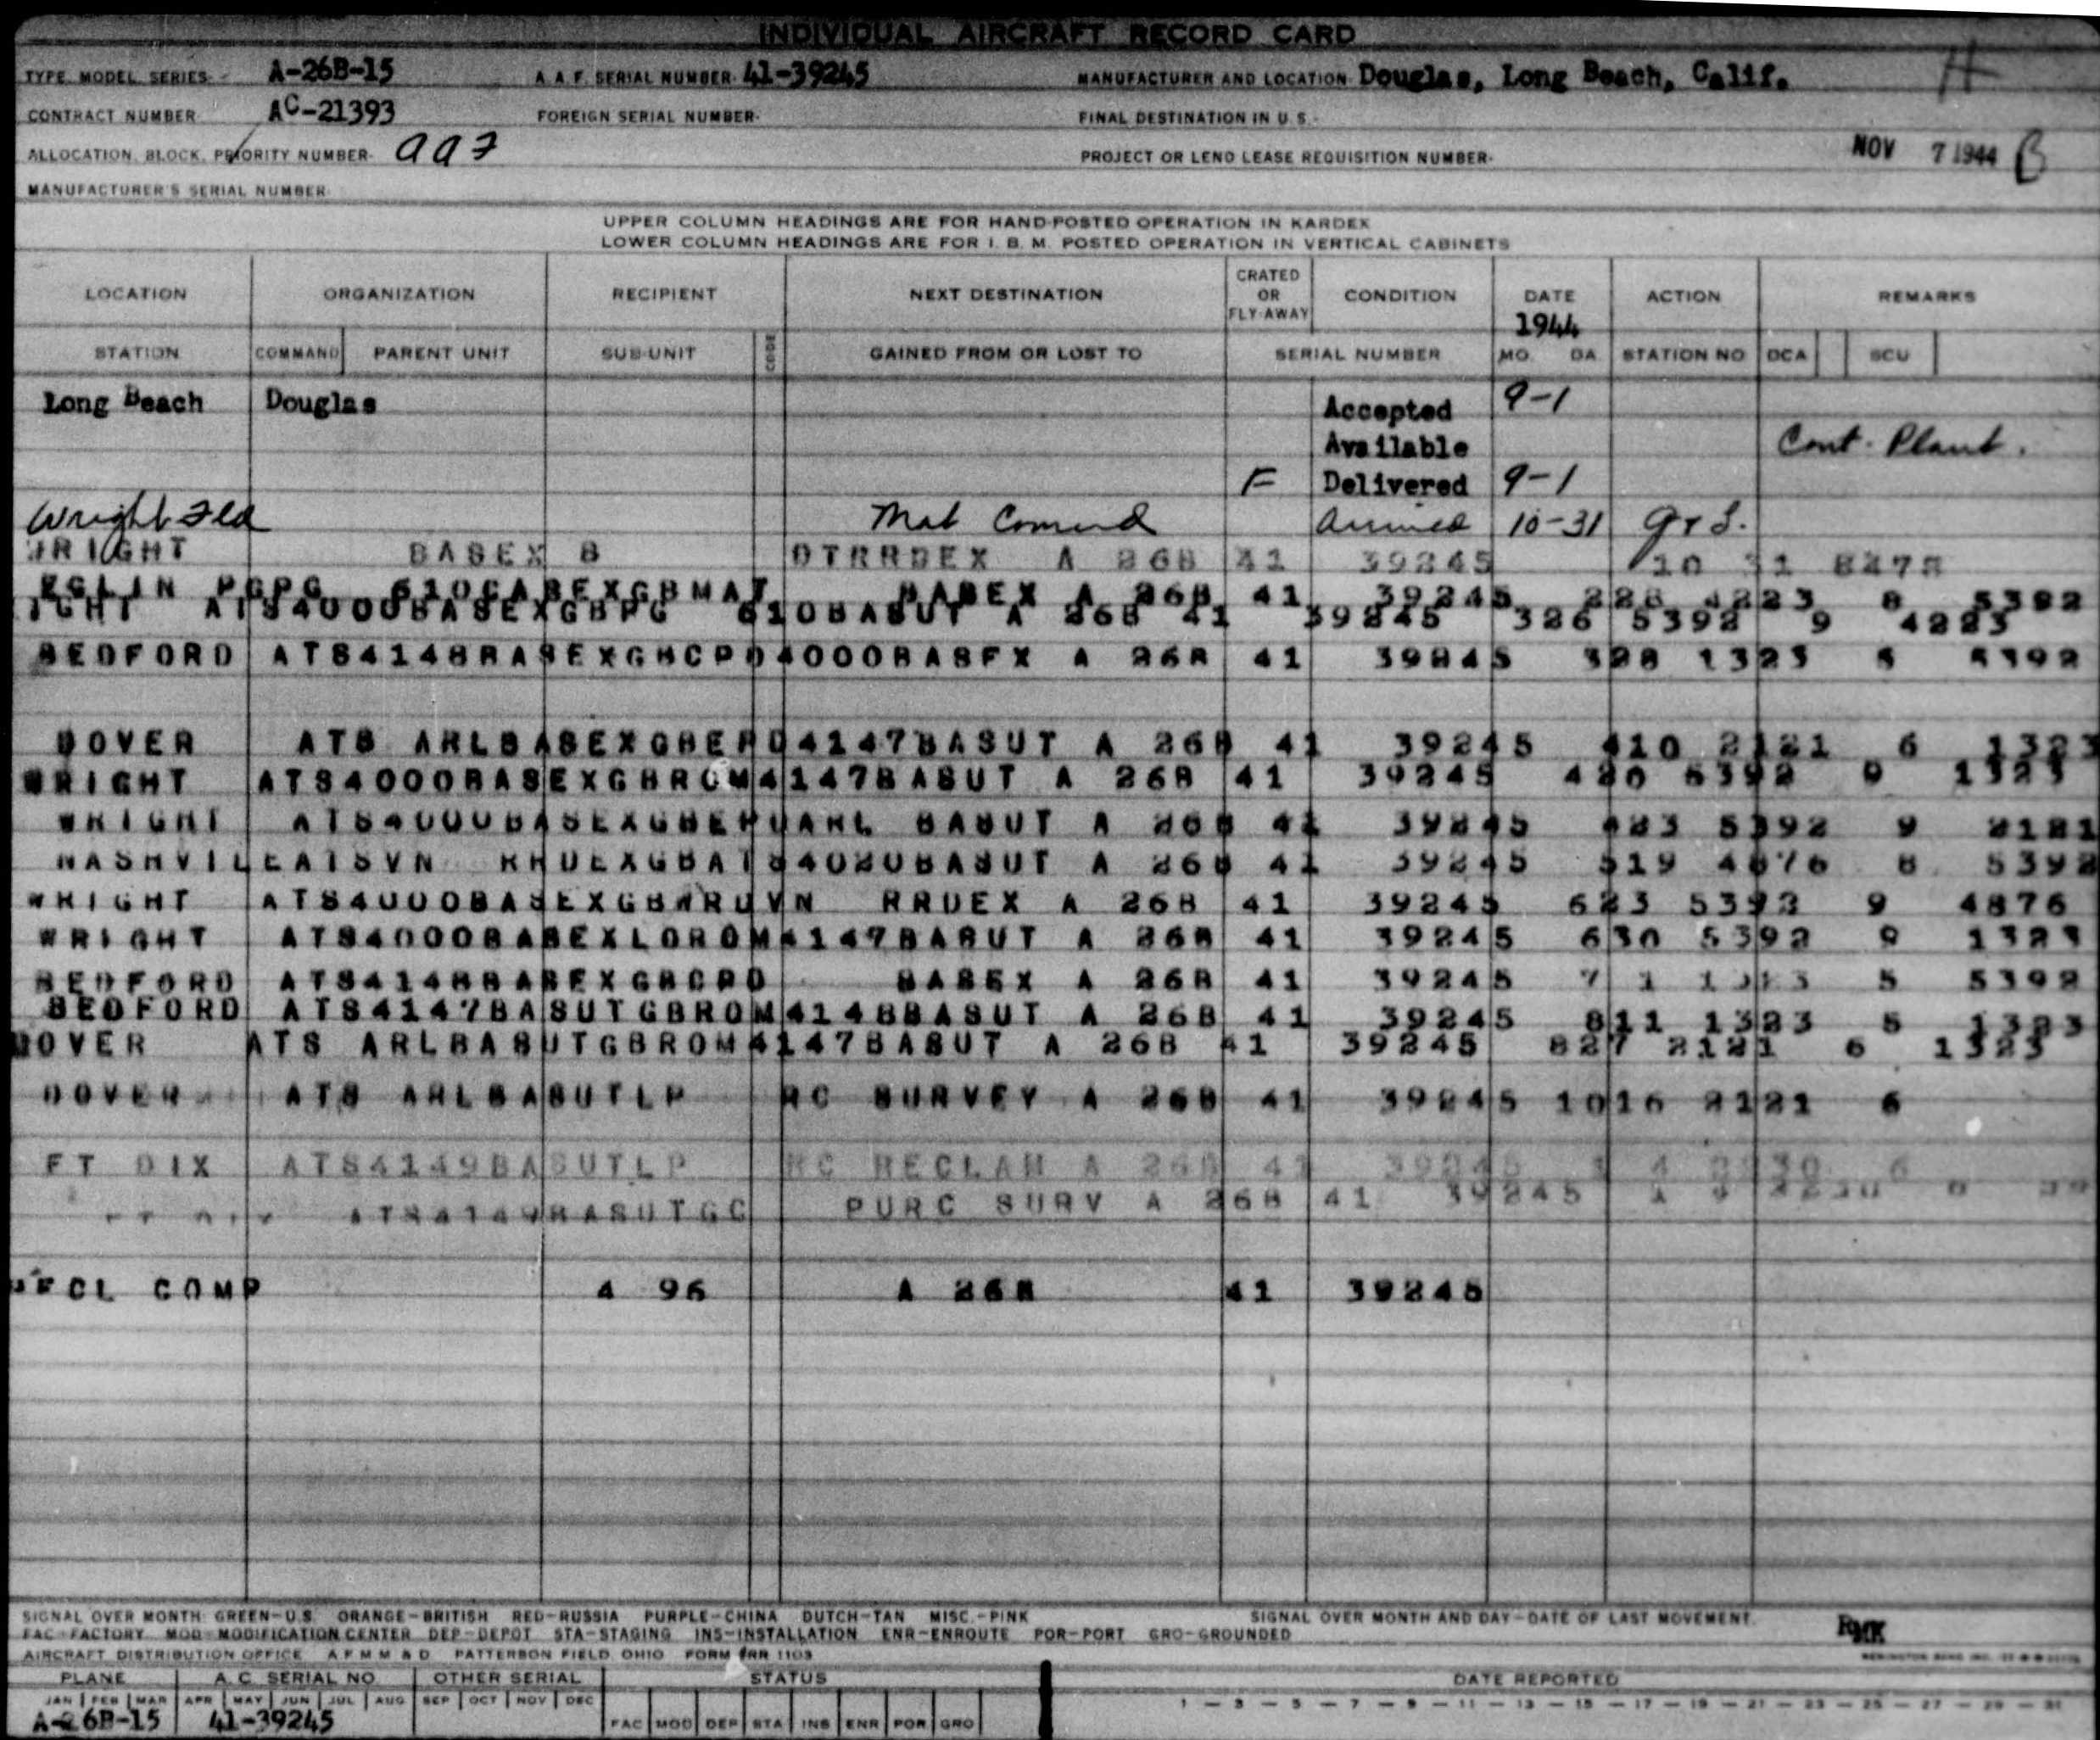 INDIVIDUAL AIRCRAFT RECORD CARD
TYPE, MODEL, SERIES- A-26B-15 A.A.F. SERIAL NUMBER- 41-39245 MANUFACTURER AND LOCATION- Douglas, Long Beach, Calif. H
CONTRACT NUMBER- AC-21393 FOREIGN SERIAL NUMBER- FINAL DESTINATION IN U.S.-
ALLOCATION, BLOCK, PRIORITY NUMBER- PROJECT OR LEND LEASE REQUISITION NUMBER- NOV 7 1944 B
MANUFACTURER'S SERIAL NUMBER-
UPPER COLUMN HEADINGS ARE FOR HAND-POSTED OPERATION IN KARDEX
LOWER COLUMN HEADINGS ARE FOR I. B. M. POSTED OPERATION IN VERTICAL CABINETS
LOCATION ORGANIZATION RECIPIENT NEXT DESTINATION CRATED OR FLY-AWAY CONDITION DATE 1944 ACTION REMARKS
STATION COMMAND PARENT UNIT SUB-UNIT CODE GAINED FROM OR LOST TO SERIAL NUMBER MO. DA. STATION NO DCA SCU
Long Beach Douglas Accepted 9-1
Available Cont. Plant.
F Delivered 9-1
Wright Fld Mat Comand Arrived 10-31
WRIGHT BASEX B DTRRDEX A 26B 41 39245 10 31
EGLIN PGPG 610CABEXGBMAT BABEX A 26B 41 39245 228 4223 8 5392
IGHT ATS4000BASEXGBPG 610BASUT A 26B 41 39245 326 5392 9 4223
BEDFORD ATS4148BASEXGBCPD4000BASEX A 26B 41 39245 328 1323 5 5392
DOVER ATS ARLBASEXGBEPD4147BASUT A 26B 41 39245 410 2121 6 1323
WRIGHT ATS4000BASEXGBROM4147BASUT A 26B 41 39245 420 5392 9 1323
WRIGHT ATS4000BASEXGBEPDARL BASUT A 26B 41 39245 423 5392 9 2121
NASHVILEATSVN RRDEXGBATS4020BASUT A 26B 41 39245 519 4876 8 5392
WRIGHT ATS4000BASEXGBWRDVN RRDEX A 26B 41 39245 623 5392 9 4876
WRIGHT ATS4000BASEXLOROM4147BASUT A 26B 41 39245 630 5392 9 1323
BEDFORD ATS4148BASEXGBCPD BASEX A 26B 41 39245 7 1 1323 5 5392
BEDFORD ATS4147BASUTGBROM4148BASUT A 26B 41 39245 811 1323 5 1323
DOVER ATS ARLBASUTGBROM4147BASUT A 26B 41 39245 827 2121 6 1323
DOVER ATS ARLBASUTLP RC SURVEY A 26B 41 39245 1016 2121 6
FT DIX ATS4149BASUTLP RC RECLAM A 26B 41 39245 1 4 2230 6
FT DIX ATS4149BASUTGC PURC SURV A 26B 41 39245
RECL COMP 4 96 A 26B 41 39245
SIGNAL OVER MONTH: GREEN-U.S. ORANGE-BRITISH RED-RUSSIA PURPLE-CHINA DUTCH-TAN MISC.-PINK SIGNAL OVER MONTH AND DAY-DATE OF LAST MOVEMENT.
FAC-FACTORY MOD-MODIFICATION CENTER DEP-DEPOT STA-STAGING INS-INSTALLATION ENR-ENROUTE POR-PORT GRO-GROUNDED RMK
AIRCRAFT DISTRIBUTION OFFICE A F M M & D PATTERSON FIELD, OHIO FORM ARR 1103
PLANE A. C. SERIAL NO. OTHER SERIAL STATUS DATE REPORTED
JAN FEB MAR APR MAY JUN JUL AUG SEP OCT NOV DEC 1 - 3 - 5 - 7 - 9 - 11 - 13 - 15 - 17 - 19 - 21 - 23 - 25 - 27 - 29 - 31
A-26B-15 41-39245 FAC MOD DEP STA INS ENR POR GRO